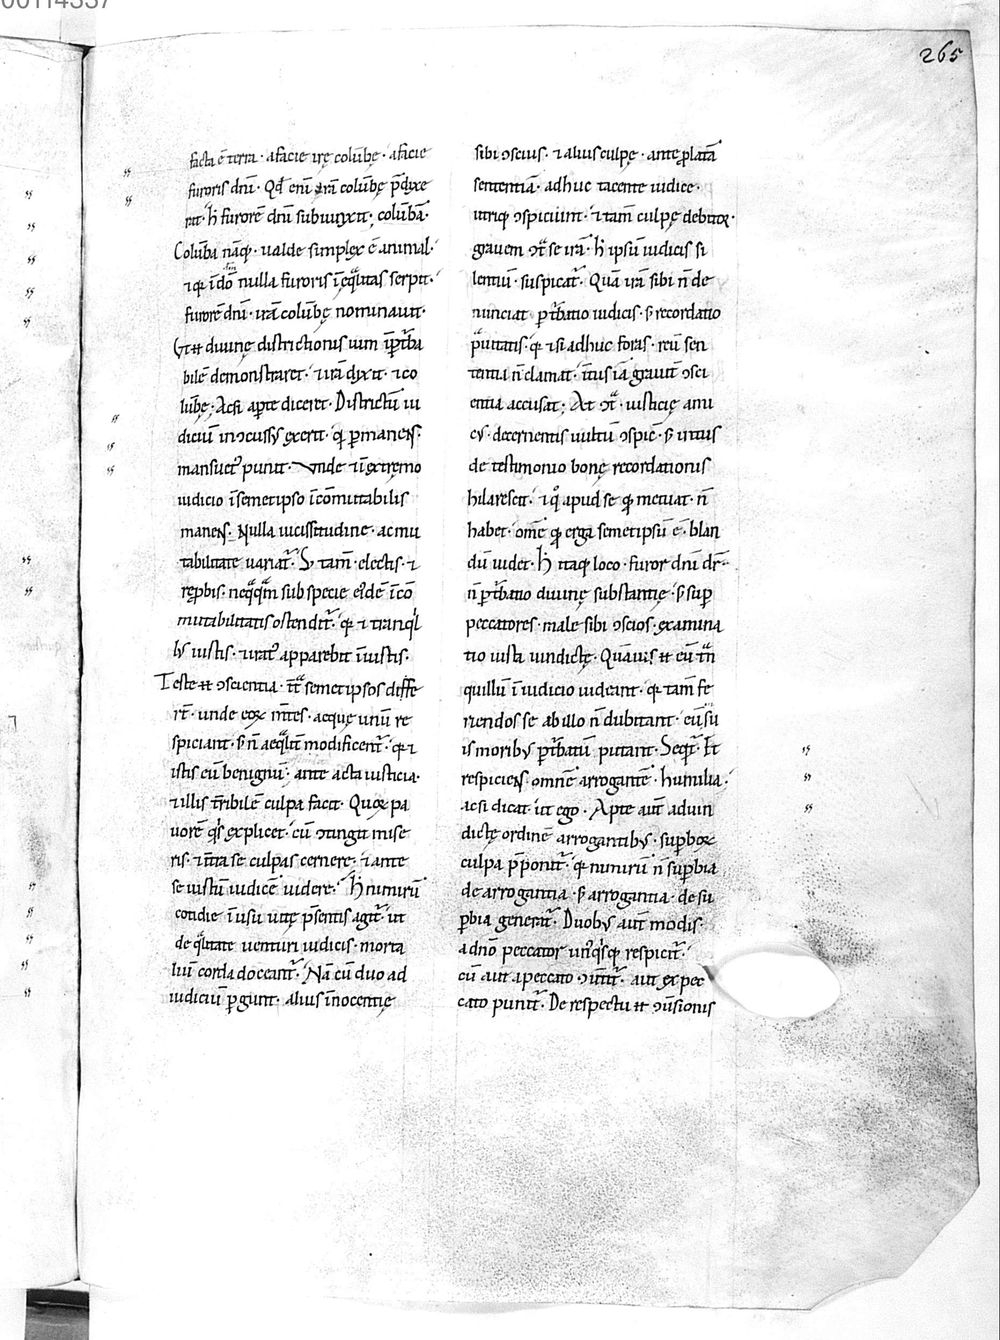 00114337
265
facta ē terra · a facie irę colūbę · a facie
furoris dn̄i · Qd̄ enī irā colūbę p̄dixe
rit · h̄ furorē dn̄i subiunxit · colūbā ·
Colūba nāq; · ualde simplex ē animal ·
⁊ q; ī dō nulla furoris īeq̄litas serpit ·
furorē dn̄i · irā colūbę nominauit ·
Ut divinę districtionis uim īp̄t̄ba
bilē demonstraret · ⁊ irā dixit · ⁊ co
lūbę; Acsi ap̄te diceret · Districtū iu
diciū inconcussus exerit · q; p̄manens ·
mansuetꝰ punit · Vnde ⁊ ī extremo
iudicio ī semetipso īcōmutabilis
manens · Nulla uicissitudine · ac mu
tabilitate uariat̄ · S; tam̄ · electis · ⁊
rep̄bis · neq̄q̄m̄ sub specie eiꝰdē īcō
mutabilitatis ostendit̄ · q; ⁊ tranq̄l
lꝰ iustis · ⁊ iratꝰ apparebit īiustis ·
Teste ē ↄscientia · īt̄ semetipsos diffe
rt̄ · unde eoꝝ m̄tes · acque unū re
spiciant · s; n̄ aeq̄lit̄ modificent̄ · q; ⁊
istis eū benignū · ante acta iusticia ·
⁊ illis t̄ribilē culpa facit · Quoꝝ pa
uorē q̄s explicet · cū ↄtingit mise
ris · ⁊ īt̄a se culpas cernere · ⁊ ante
se iustū iudicē uidere · h̄ nimirū
cotidie ī usu uitę p̄sentis agit̄ · ut
de q̄litate uenturi iudicis · morta
liū corda doceant̄ · Nā cū duo ad
iudiciū p̄gunt · alius īnocentię
sibi ↄscius · ⁊ alius culpę · ante p̄latā
sententiā · adhuc tacente iudice ·
utriq; ↄspiciunt · ⁊ tam̄ culpę debitor ·
grauem ↄt̄ se irā · h̄ ipsū iudicis si
lentiū · suspicat̄ · Quā irā sibi n̄ de
nunciat p̄t̄batio iudicis · s; recordatio
p̄uitatis · q; ⁊ si adhuc foras · reū sen
tentia n̄ clamat · īt̄us iā grauit̄ ↄsci
entia accusat; At ↄt̄ · iusticię ami
cꝰ · decernentis uultū ↄspic̄ · s; intus
de testimonio bonę recordationis
hilarescit · ⁊ q̊ apud se q; metuat · n̄
habet · om̄e q; erga semetipsū ē · blan
dū uidet · h̄ itaq; loco · furor dn̄i dr̄ ·
n̄ p̄t̄batio diuinę substantię · s; sup̄
peccatores · male sibi ↄscios · examina
tio iusta uindictę · Quāuis ēt̄ eū t̄n̄
quillū ī iudicio uideant · q; tam̄ fe
riendos se ab illo n̄ dubitant · eū su
is moribꝰ p̄t̄batū putant · Seqt̄ · Et
respiciens omnē arrogantē · humilia ·
acsi dicat · ut ego · Apte aut̄ aduin
dictę ordinē arrogantibꝰ · sup̄boꝝ
culpa p̄ponit̄ · q; nimirū n̄ sup̄bia
de arrogantia · s; arrogantia · de su
p̄bia generat̄ · Duobꝰ aut̄ modis ·
a dn̄o peccator unꝰq̄sq; respicit̄ ·
cū aut a peccato ↄūt̄it̄ · aut ex pec
cato punit̄ · De respectu ēt̄ ↄūsionis